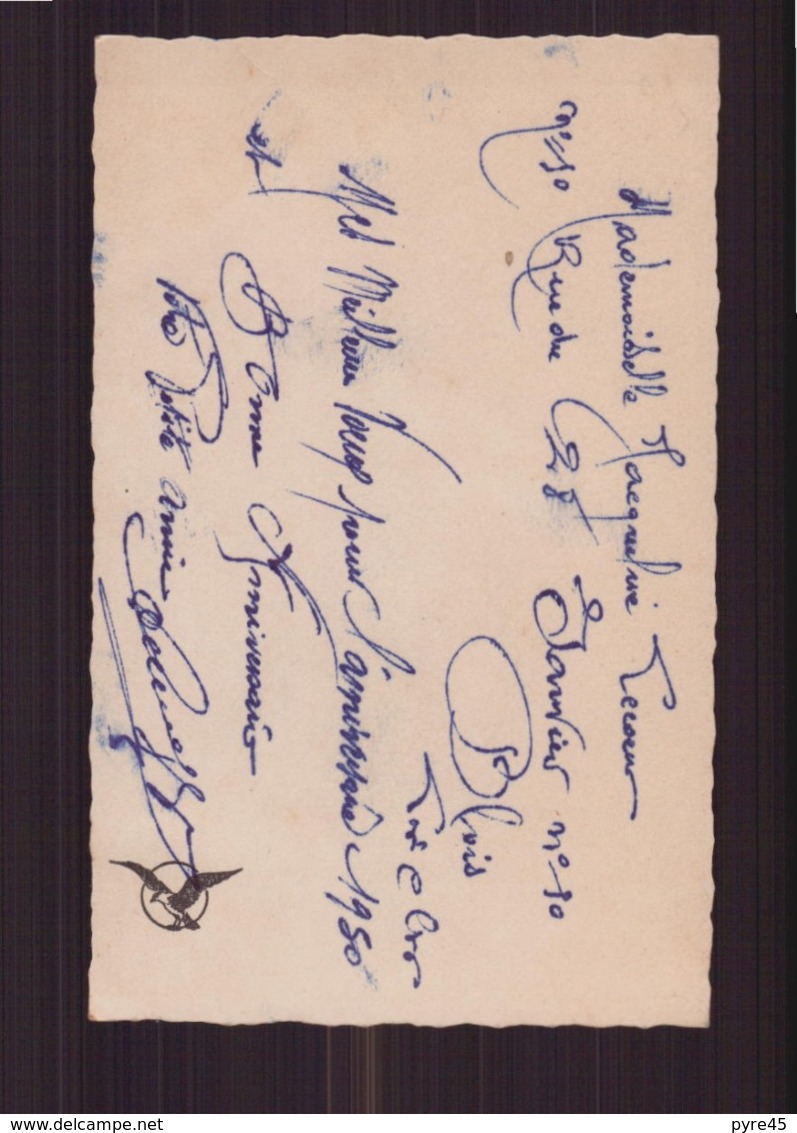 Mademoiselle Jacqueline Lecoeur
N° 10 Rue du 28 Janvier n° 10
Blois
Loir et Cher
Mes Meilleur Voeux pour l'anniversaire 1950
et
Bonne Anniversaire
Votre Petite amie
www.delcampe.net
pyre45